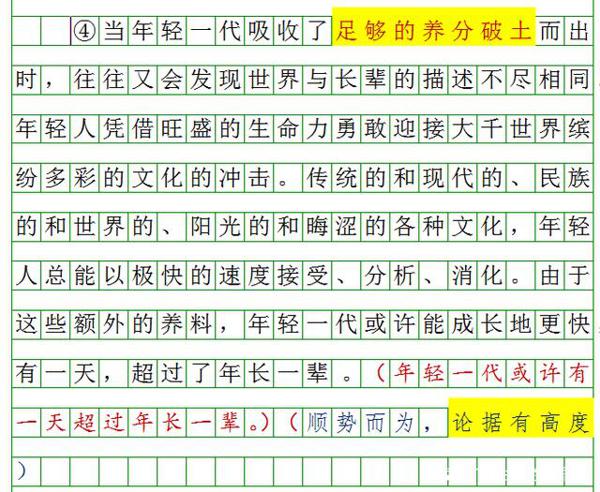 ④当年轻一代吸收了足够的养分破土而出
时，往往又会发现世界与长辈的描述不尽相同，
年轻人凭借旺盛的生命力勇敢迎接大千世界缤
纷多彩的文化的冲击。传统的和现代的、民族
的和世界的、阳光的和晦涩的各种文化，年轻
人总能以极快的速度接受、分析、消化。由于
这些额外的养料，年轻一代或许能成长地更快，
有一天，超过了年长一辈。（年轻一代或许有
一天超过年长一辈。）（顺势而为，论据有高度
）